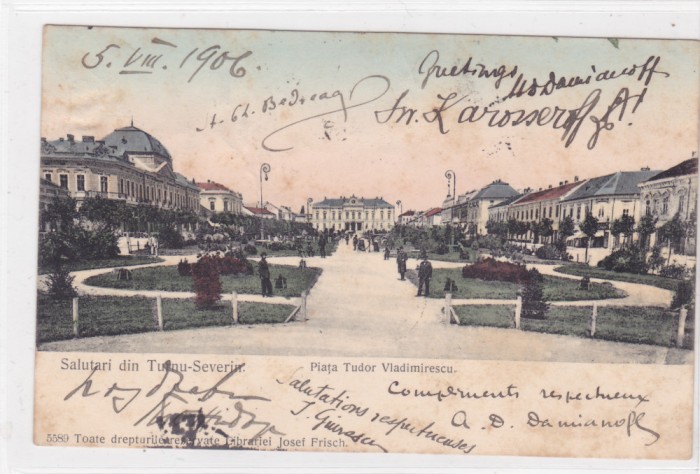 5. VIII. 1906
Greetings
Damianoff
A. Ch. Bedreag
Sv.
Salutari din Turnu-Severin.
Piața Tudor Vladimirescu.
Salutations respectueuses
Compliments respectueux
A. D. Damianoff
5589 Toate drepturile reservate Librariei Josef Frisch.